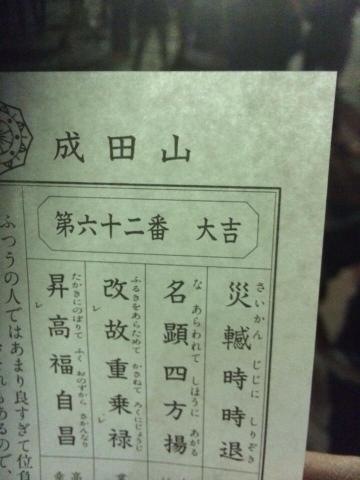 成田山
第六十二番 大吉
さいかん じじに しりぞき
災轗時時退
な あらわれて しほうに あがる
名顕四方揚
ふるきをあらためて かさねて ろくにじょうじ
改故重乗禄
レ
たかきにのぼりて ふく おのずから さかんなり
昇高福自昌
レ
ふつうの人ではあまり良すぎて位負